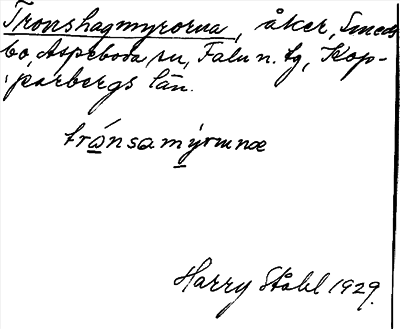 Tronshagmyrorna, åker, Smeds
bo, Aspeboda sn, Falu n. tg, Kop-
parbergs län.
trånsamýrnnæ
Harry Ståhl 1929.